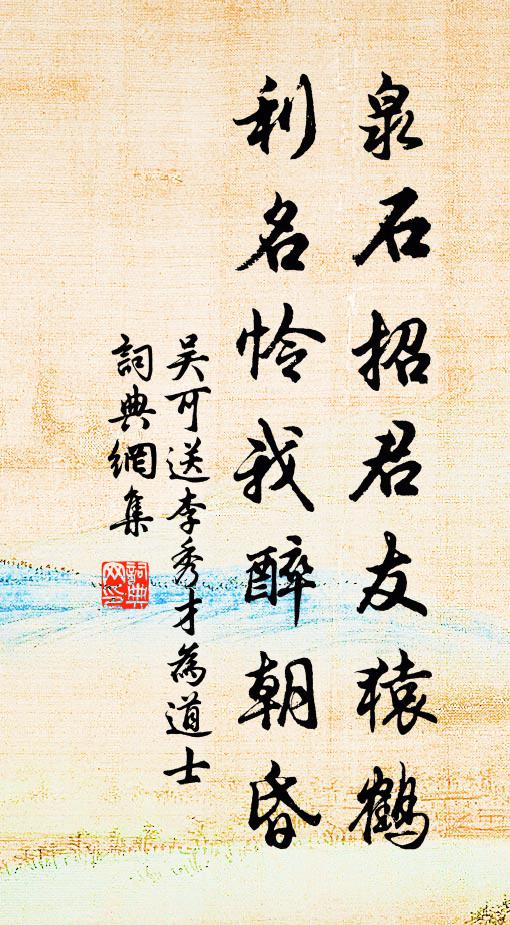 泉石招君友猿鶴
利名怜我醉朝昏
吴可送李秀才為道士
詞典網集
詞典
网印